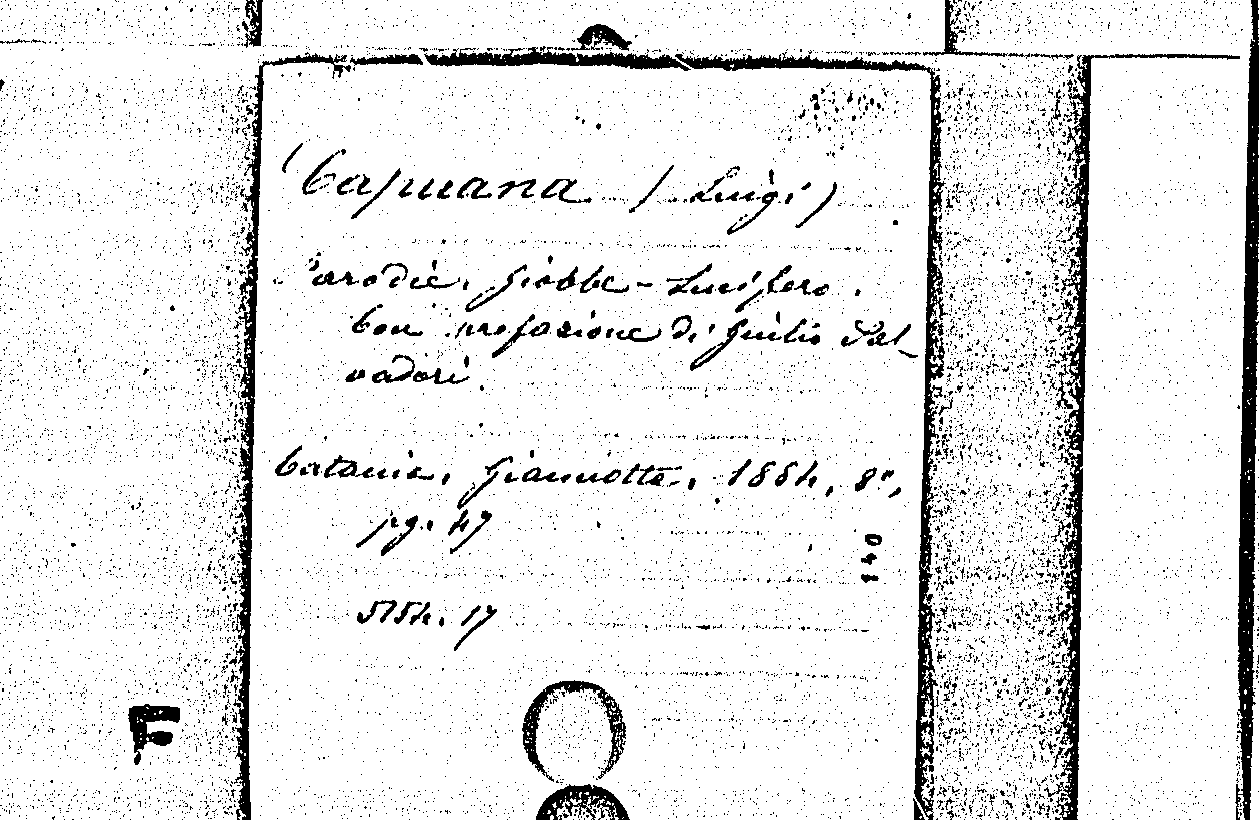 Capuana (Luigi)
Parodie. Giobbe - Lucifero.
Con prefazione di Giulio Sal-
vadori.
Catania, Giannotta, 1884, 8°,
pg. 47
5154. 17
140
F